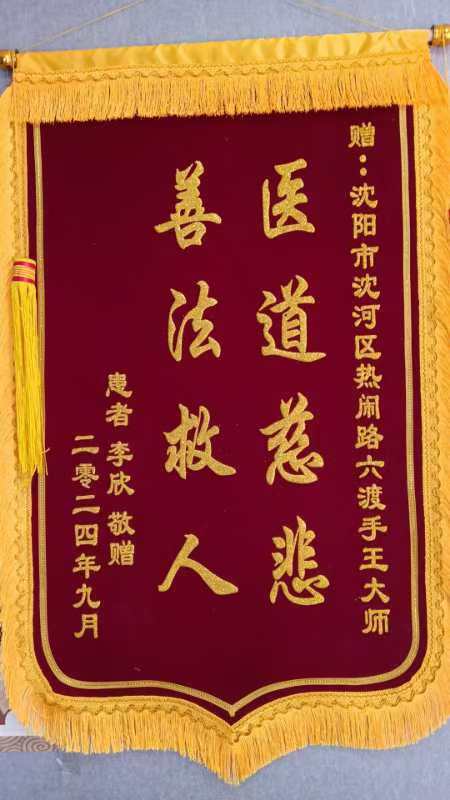 赠：沈阳市沈河区热闹路六渡手王大师
医道慈悲
善法救人
患者 李欣 敬赠
二零二四年九月